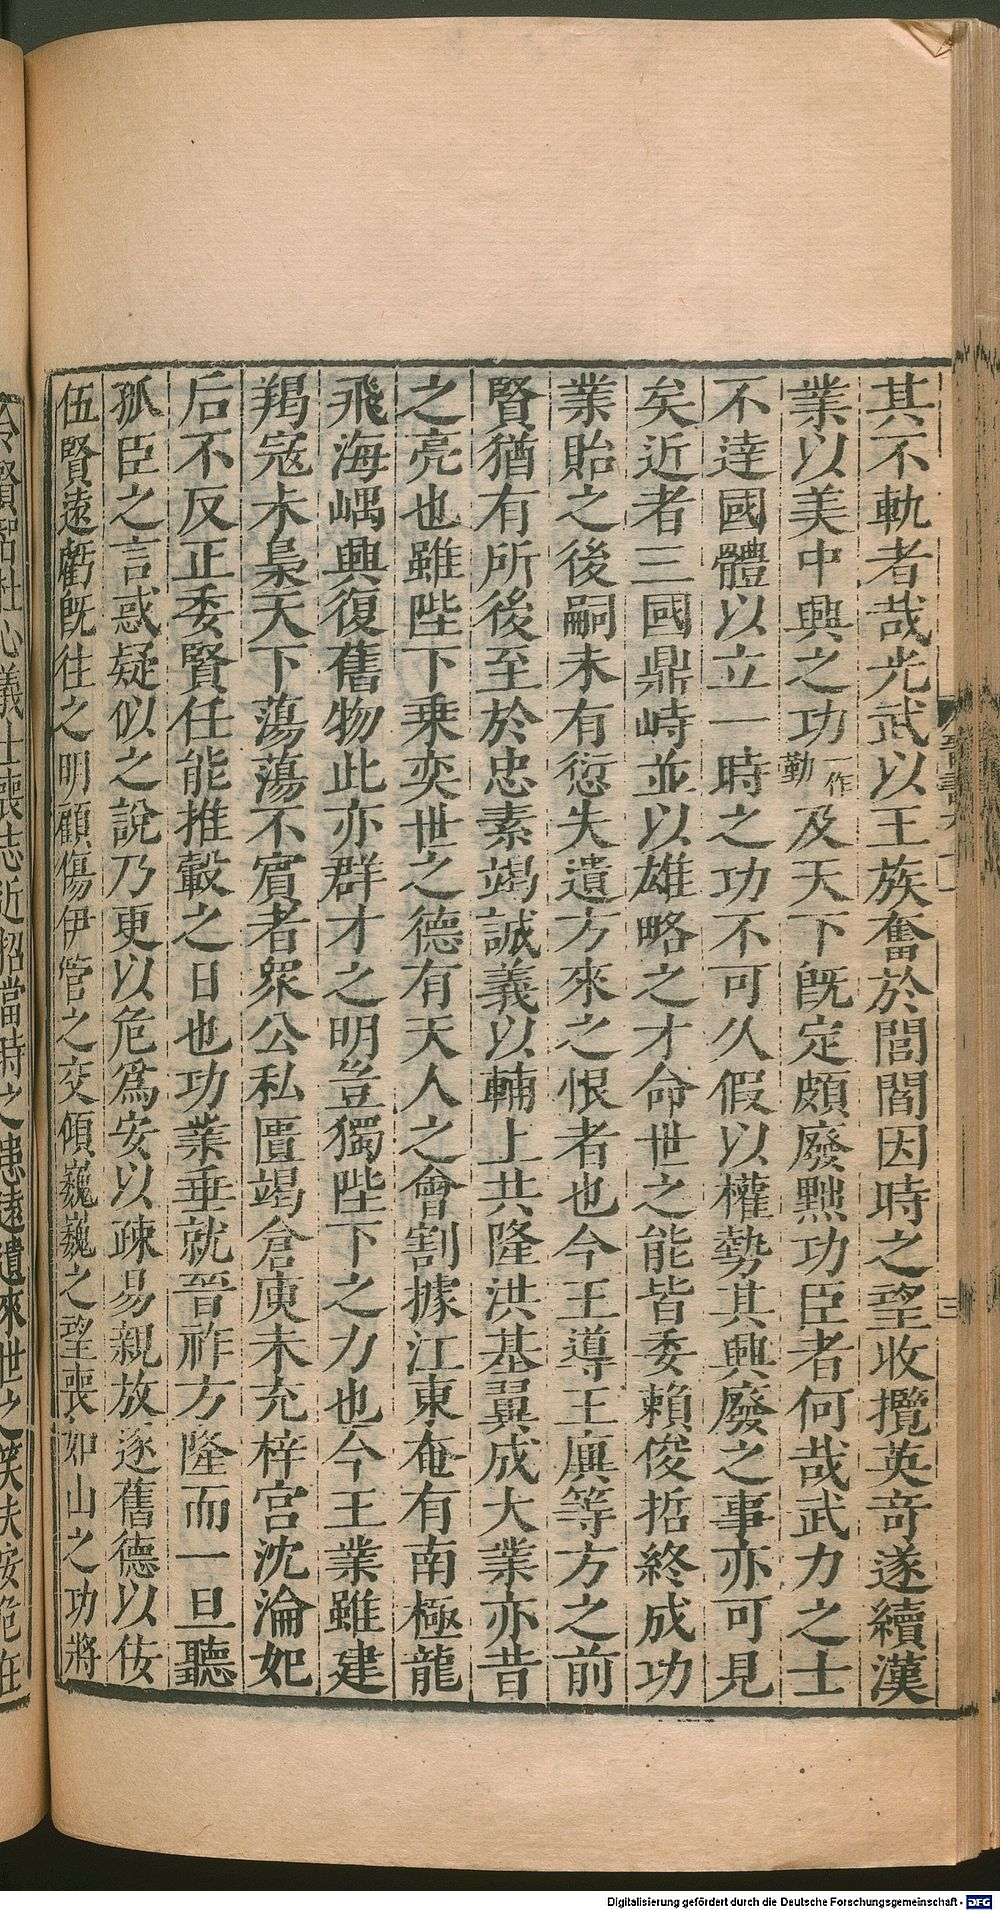 其不軌者哉光武以王族奮於閭閻因時之望收攬英奇遂續漢
業以美中興之功一作勤及天下既定頗廢黜功臣者何哉武力之士
不達國體以立一時之功不可久假以權勢其興廢之事亦可見
矣近者三國鼎峙並以雄略之才命世之能皆委賴俊哲終成功
業貽之後嗣未有愆失遺方來之恨者也今王導王廙等方之前
賢猶有所後至於忠素竭誠義以輔上共隆洪基翼成大業亦昔
之亮也雖陛下乗奕世之德有天人之會割據江東奄有南極龍
飛海嵎興復舊物此亦群才之明豈獨陛下之力也今王業雖建
羯寇未梟天下蕩蕩不賔者衆公私匱竭倉庾未充梓宮沈淪妃
后不反正委賢任能推轂之日也功業垂就晉祚方隆而一旦聽
孤臣之言惑疑似之說乃更以危爲安以疎易親放逐舊德以佞
伍賢遠虧旣往之明顧傷伊管之交傾巍巍之望喪如山之功將
Digitalisierung gefördert durch die Deutsche Forschungsgemeinschaft - DFG